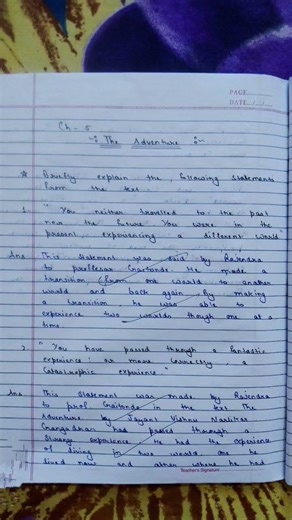 PAGE
DATE
Ch - 5
The Adventure
Briefly explain the following statements
from the text.
1. "You neither travelled to the past
nor the future. You were in the
present, experiencing a different world"
Ans This statement was said by Rajendra
to proffessor Gaitonde. He made a
transition from one world to another
world and back again. By making
a transition he was able to
experience two worlds though one at a
time.
2. "You have passed through a fantastic
experience: or more correctly, a
Catastrophic experience."
Ans This statement was made by Rajendra
to prof Gaitonde in the text The
Adventure by Jayant Vishnu Narlikar
Gangadhar had passed through a
Strange experience. He had the experience
of living in two world one he
lived now and other where he had
Teacher's Signature